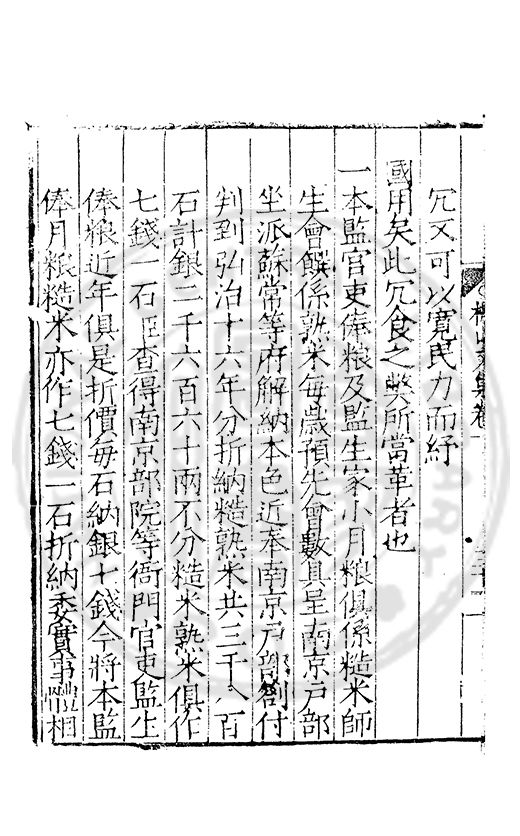 山文集卷
冗又可以寛民力而紓
國用矣此冗食之弊所當革者也
一本監官吏俸粮及監生家小月粮俱係糙米師
生會饌係熟米每歲預先會數具呈南京戶部
坐派蘇常等府解納本色近奉南京戶部劄付
判到弘治十六年分折納糙熟米共三千八百
石計銀二千六百六十兩不分糙米熟米俱作
七錢一石查得南京部院等衙門官吏監生
俸粮近年俱是折價每石納銀七錢今將本監
俸月粮糙米亦作七錢一石折納委實事體相